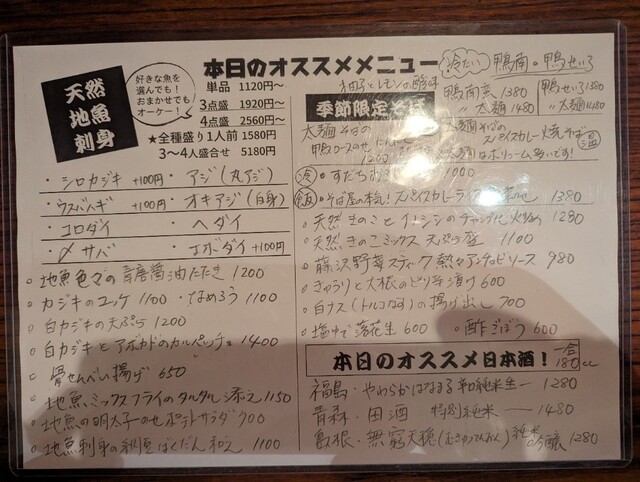 本日のオススメメニュー
天然
地魚
刺身
好きな魚を
選んでも!
おまかせでも
オーケー!
単品 1120円~
3点盛 1920円~
4点盛 2560円~
★全種盛り1人前 1580円
3~4人盛合せ 5180円
・シロカジキ +100円 ・アジ(丸アジ)
・ウスバハギ +100円 ・オキアジ(白身)
・コロダイ ・ヘダイ
・〆サバ ・エボダイ +100円
○地魚色々の青唐醤油たたき 1200
○カジキのユッケ 1100 ・なめろう 1100
○白カジキの天ぷら 1200
○白カジキとアボカドのカルパッチョ 1400
○骨せんべい揚げ 650
○地魚ミックスフライのタルタル添え 1150
○地魚の明太子のせポテトサラダ 900
○地魚刺身の納豆ばくだん和え 1100
柚子とレモンの酸味
季節限定そば
冷たい 鴨南・鴨せいろ
鴨南蛮 1380
〃太麺 1480
鴨せいろ 1380
〃太麺 1480
太麺そばの
鴨ロースのせ
太麺そばの
スパイスカレー焼そば 温
太麺はボリューム多いです!
冷 すだち 1000
飯 そば屋の本気!スパイスカレーライス 1380
○天然きのことイノシシの 1280
○天然きのこミックス天ぷら盛 1100
○藤沢野菜スティック熱々アンチョビソース 980
○きゅうりと大根のピリ辛漬け 600
○白ナス(トルコなす)の揚げ出し 700
○塩ゆで落花生 600 ・酢ごぼう 600
本日のオススメ日本酒! 一合 180cc
福島・やわらかはなまる 純米生 1280
青森・田酒 特別純米 1480
島根・無窮天穏(むきゅうてんおん)純米吟醸 1280